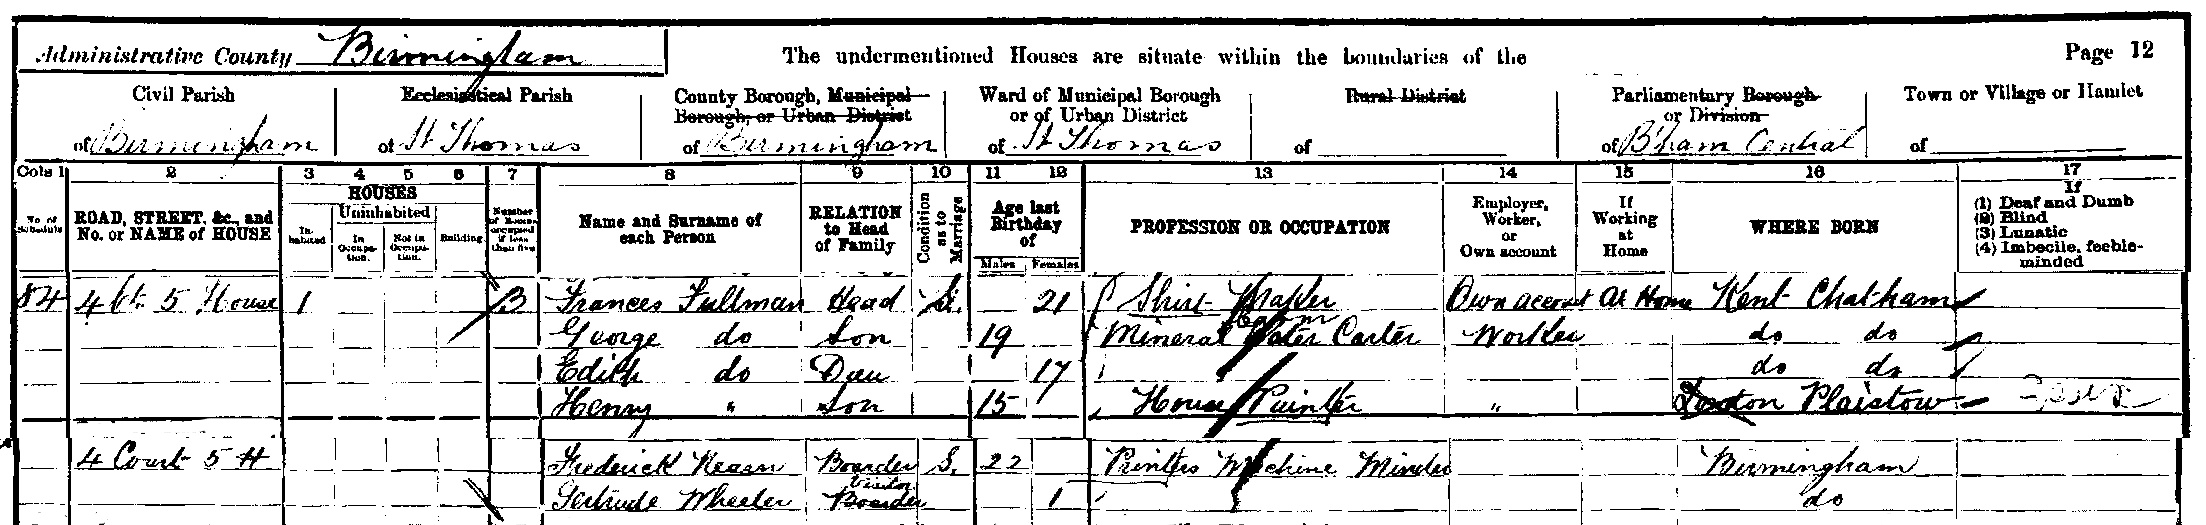 Administrative County Birmingham The undermentioned Houses are situate within the boundaries of the Page 12
Civil Parish Ecclesiastical Parish County Borough, Municipal Borough, or Urban District Ward of Municipal Borough or of Urban District Rural District Parliamentary Borough or Division Town or Village or Hamlet
of Birmingham of St Thomas of Birmingham of St Thomas of of B'ham Central of
Cols 1 2 3 4 5 6 7 8 9 10 11 12 13 14 15 16 17
No. of Schedule ROAD, STREET, &c., and No. or NAME of HOUSE HOUSES Inhabited Uninhabited In Occupation. Not in Occupation. Building Number of Rooms occupied if less than five Name and Surname of each Person RELATION to Head of Family Condition as to Marriage Age last Birthday of Males Females PROFESSION OR OCCUPATION Employer, Worker, or Own account If Working at Home WHERE BORN If (1) Deaf and Dumb (2) Blind (3) Lunatic (4) Imbecile, feeble-minded
84 4 Ct. 5 House 1 3 Frances Fullman Head S. 21 Shirt Maker Own account At Home Kent Chatham
George do Son 19 Mineral Water Carter Worker do do
Edith do Dau 17 do do
Henry " Son 15 House Painter " London Plaistow
4 Court 5 H Frederick Regan Boarder S. 22 Printers Machine Minder Birmingham
Visitor
Gertrude Wheeler Boarder 1 do